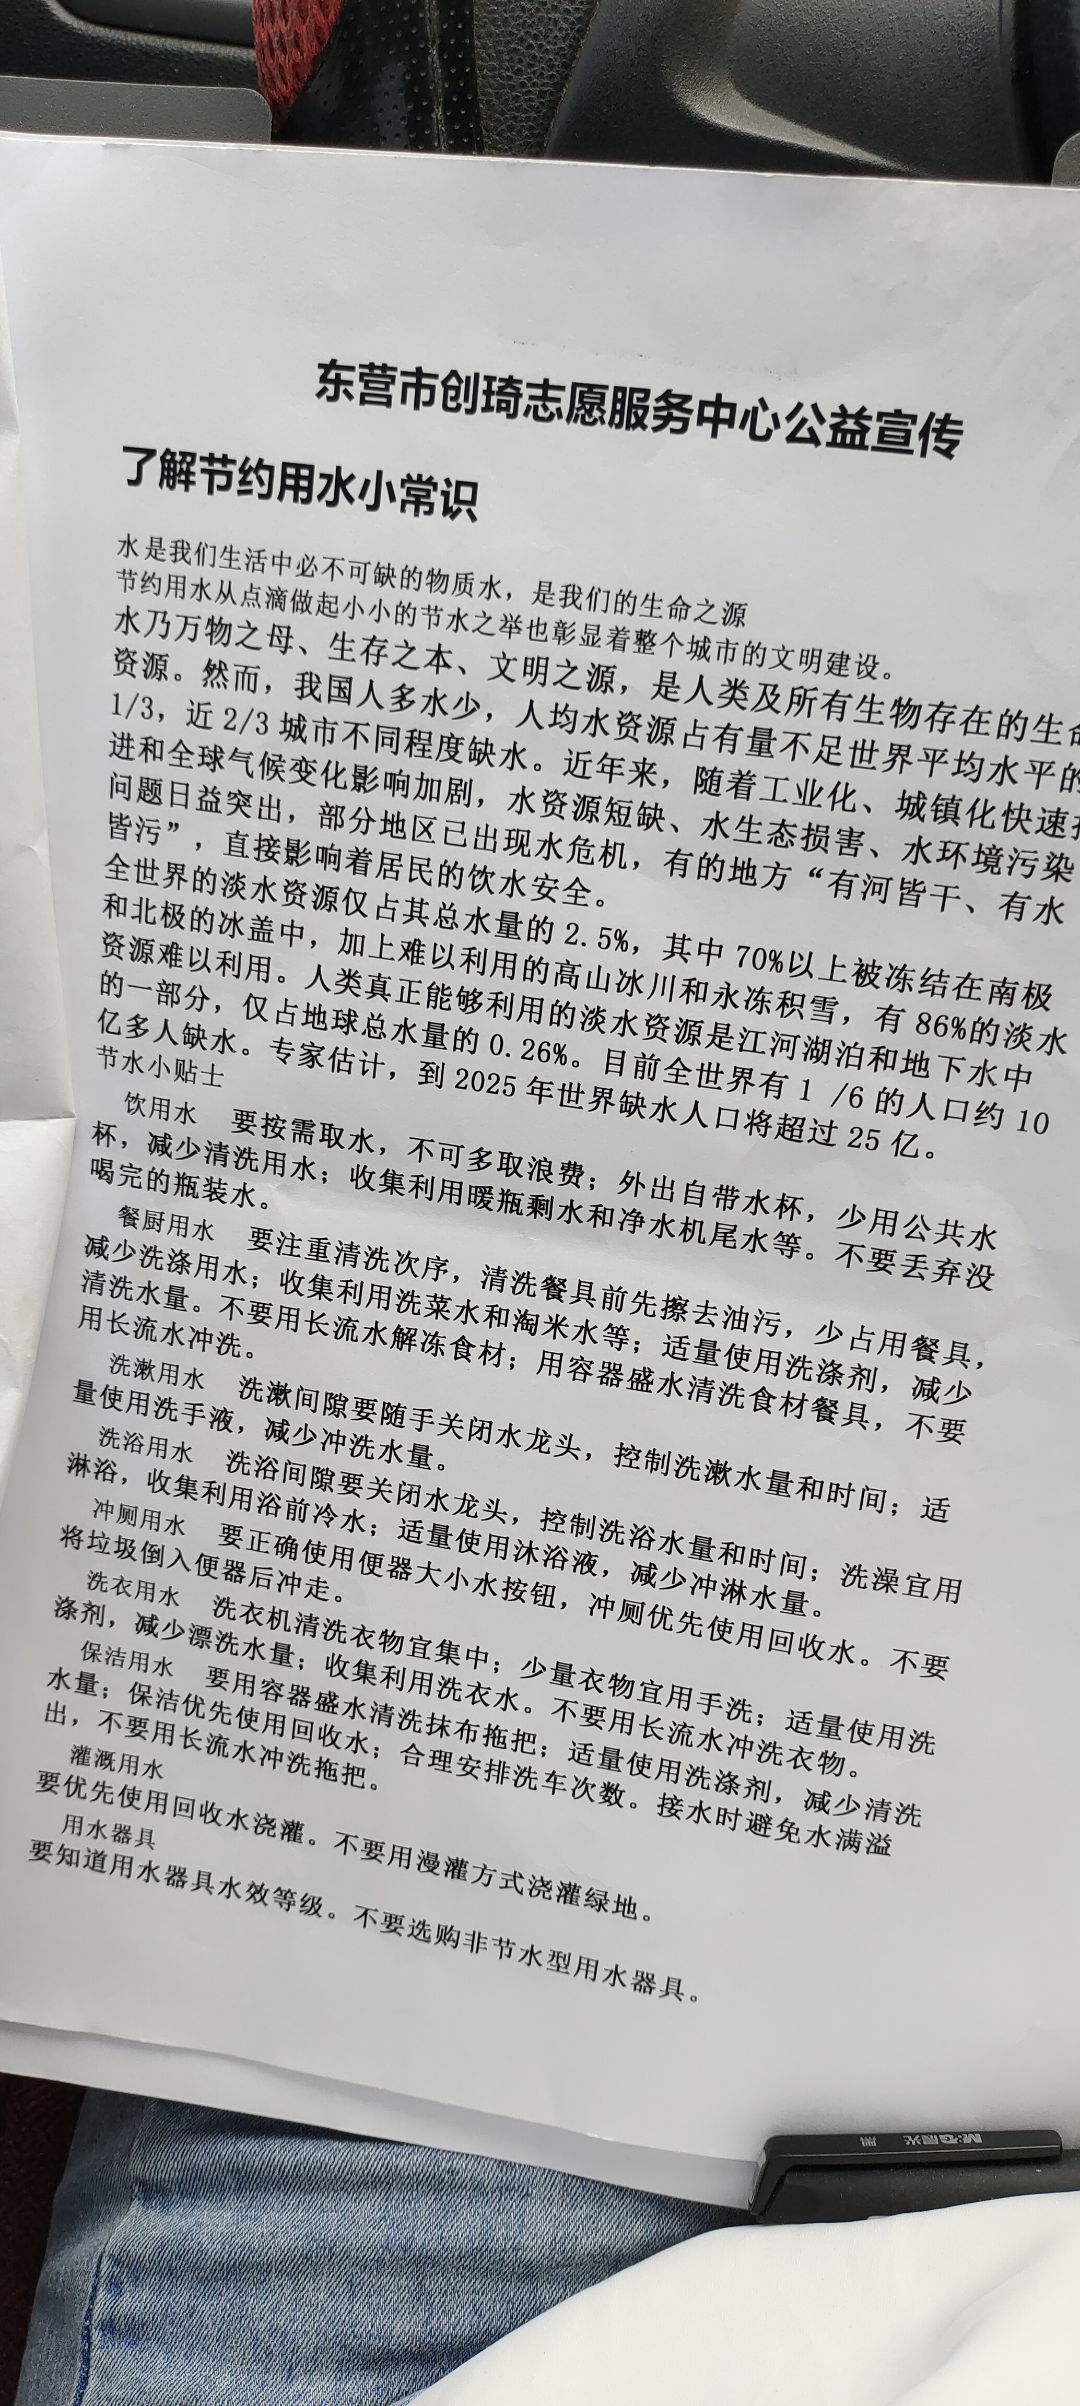 东营市创琦志愿服务中心公益宣传
了解节约用水小常识
水是我们生活中必不可缺的物质水，是我们的生命之源
节约用水从点滴做起小小的节水之举也彰显着整个城市的文明建设。
水乃万物之母、生存之本、文明之源，是人类及所有生物存在的生命
资源。然而，我国人多水少，人均水资源占有量不足世界平均水平的
1/3，近 2/3 城市不同程度缺水。近年来，随着工业化、城镇化快速
进和全球气候变化影响加剧，水资源短缺、水生态损害、水环境污染
问题日益突出，部分地区已出现水危机，有的地方“有河皆干、有水
皆污”，直接影响着居民的饮水安全。
全世界的淡水资源仅占其总水量的 2.5%，其中 70%以上被冻结在南极
和北极的冰盖中，加上难以利用的高山冰川和永冻积雪，有 86%的淡水
资源难以利用。人类真正能够利用的淡水资源是江河湖泊和地下水中
的一部分，仅占地球总水量的 0.26%。目前全世界有 1 /6 的人口约 10
亿多人缺水。专家估计，到 2025 年世界缺水人口将超过 25 亿。
节水小贴士
饮用水 要按需取水，不可多取浪费；外出自带水杯，少用公共水
杯，减少清洗用水；收集利用暖瓶剩水和净水机尾水等。不要丢弃没
喝完的瓶装水。
餐厨用水 要注重清洗次序，清洗餐具前先擦去油污，少占用餐具，
减少洗涤用水；收集利用洗菜水和淘米水等；适量使用洗涤剂，减少
清洗水量。不要用长流水解冻食材；用容器盛水清洗食材餐具，不要
用长流水冲洗。
洗漱用水 洗漱间隙要随手关闭水龙头，控制洗漱水量和时间；适
量使用洗手液，减少冲洗水量。
洗浴用水 洗浴间隙要关闭水龙头，控制洗浴水量和时间；洗澡宜用
淋浴，收集利用浴前冷水；适量使用沐浴液，减少冲淋水量。
冲厕用水 要正确使用便器大小水按钮，冲厕优先使用回收水。不要
将垃圾倒入便器后冲走。
洗衣用水 洗衣机清洗衣物宜集中；少量衣物宜用手洗；适量使用洗
涤剂，减少漂洗水量；收集利用洗衣水。不要用长流水冲洗衣物。
保洁用水 要用容器盛水清洗抹布拖把；适量使用洗涤剂，减少清洗
水量；保洁优先使用回收水；合理安排洗车次数。接水时避免水满溢
出，不要用长流水冲洗拖把。
灌溉用水
要优先使用回收水浇灌。不要用漫灌方式浇灌绿地。
用水器具
要知道用水器具水效等级。不要选购非节水型用水器具。
M&G晨光 黑